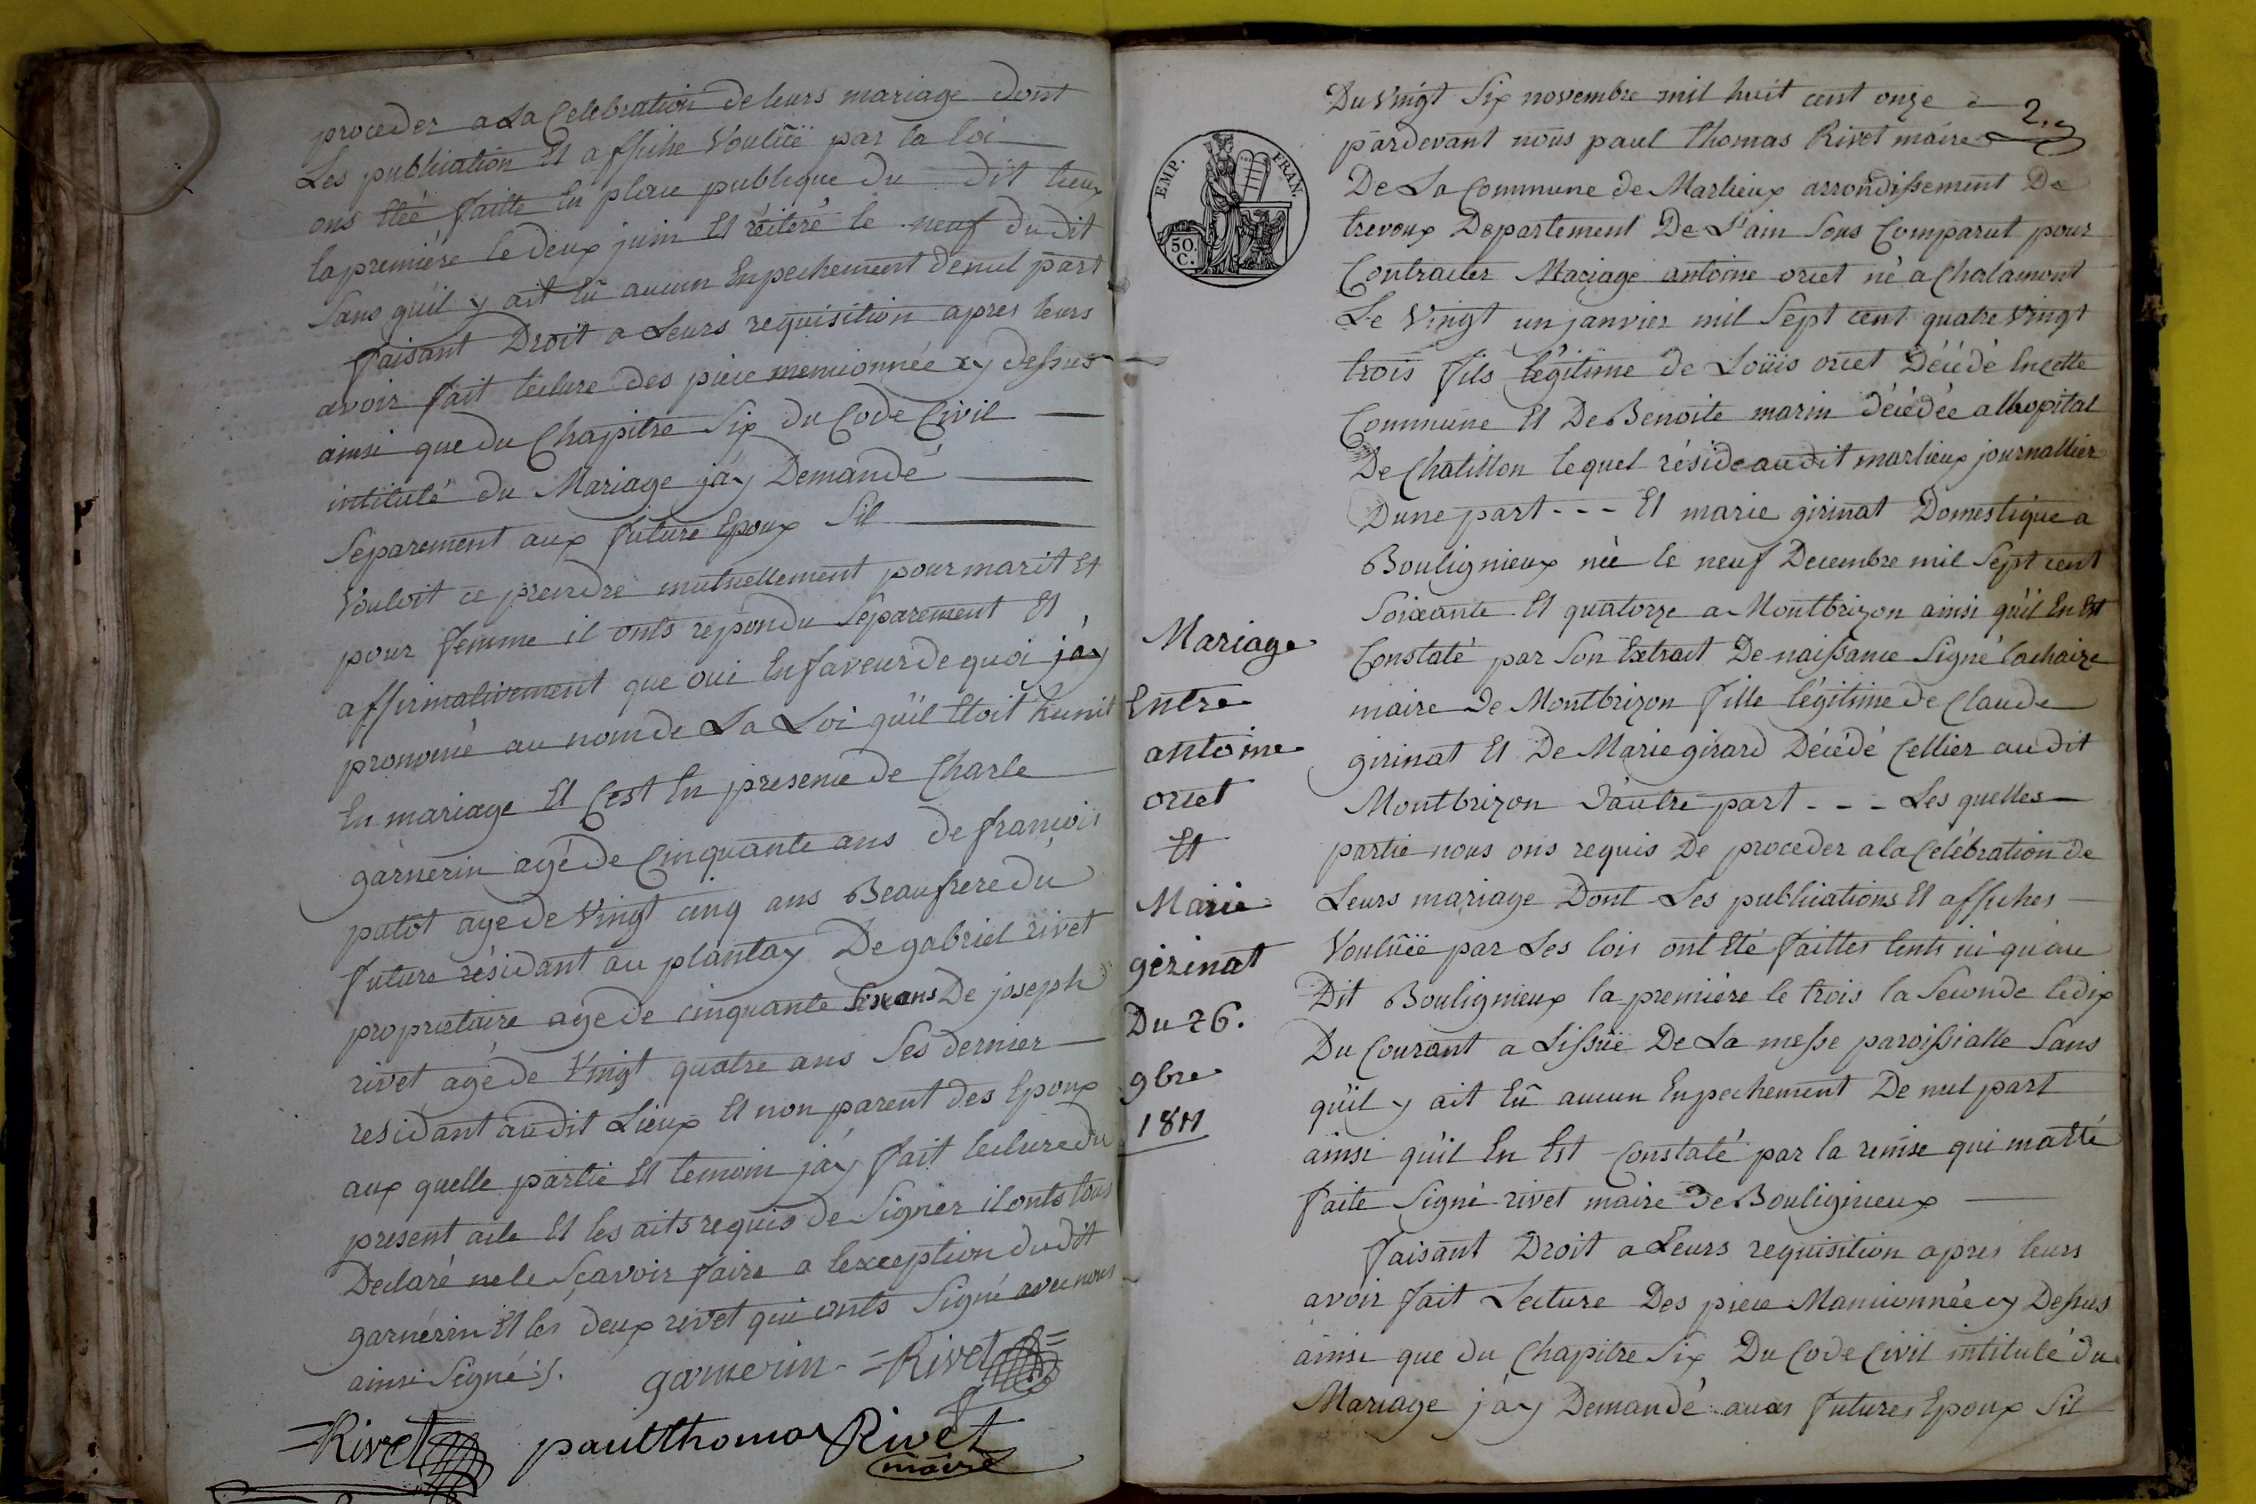 proceder a La Celebration de leurs mariage dont
Les publication Et affiche Voulüe par la loi
ons Etéé faitte En place publique Du dit lieux
la premiére le deux juin Et réiteré le neuf du dit
Sans qu'il y ait Eû aucun Enpechement de nul part
faisant Droit a Leurs requisition apres leurs
avoir fait lecture des piece mencionnée cy dessus
ainsi que du Chapitre Six du Code Civil
intitulé du Mariage jáy Demandé
Séparement aux future Epoux Sil
Vouloit ce prendre mutuellement pour marit Et
pour femme il onts répondu Séparement Et
affirmativement que oui En faveur de quoi jáy
prononcé au nom de La Loi qu'il Etoit hunit
En mariage Et C'est En presence de Charle
garnerin agé de Cinquante ans de françois
putôt agé de Vingt cinq ans Beaufrere du
future résidant au plantay De gabriel rivet
proprietaire agé de cinquante Six ans De joseph
rivet agé de Vingt quatre ans Ses dernier
residant audit Lieux Et non parent des Epoux
aux quelle partie Et temoin jáy fait lecture du
present acte Et les aits requis de Signer il onts tous
Declaré ne le Sçavoir faire a lexception du dit
garnérin Et les deux rivet qui onts Signé avec nous
ainsi Signé S.
garnerin = Rivet =
= Rivet paul thomas Rivet
maire
EMP. FRAN.
50. C.
2.e
Du Vingt Six novembre mil huit cent onze
pardevant nous paul thomas Rivet maire
De La Commune de Marlieux arrondissement De
trevoux Departement De L'ain Sons Comparut pour
Contracter Mariage antoine orcet né a Chalamont
Le Vingt un janvier mil Sept cent quatre Vingt
trois fils légitime de Loüis orcet Décédé En cette
Commune Et De Benoite marin décédée a lhopital
De Chatillon lequel réside audit marlieux journallier
Dune part - - - Et marie girinat Domestique a
Boulignieux née le neuf Decembre mil Sept cent
Soixante Et quatorze a Montbrizon ainsi qu'il En Est
Constaté par Son Extrait De naissance Signé Lachaize
maire de Montbrizon fille légitime de Claude
girinat Et De Marie girard Décédé Cellier au dit
Montbrizon D'autre part - - - Les quelles
partie nous ons requis De proceder a la Celébration de
Leurs mariage Dont Les publications Et affiches
Voulüe par Les lois ont Eté faittes tents ici qu'au
Dit Boulignieux la premiére le trois la Seconde le dix
Du Courant a Lissüe De La messe paroissialle Sans
qu'il y ait Eû aucun Enpechement De nul part
ainsi qu'il En Est Constaté par la remise qui matté
faite Signé rivet maire de Boulignieux
faisant Droit a Leurs requisition apres leurs
avoir fait Lecture Des piece Mancionnée cy Dessus
ainsi que du Chapitre Six Du Code Civil intitulé du
Mariage jáy Demandé aux futures Epoux Sil
Mariage
Entre
antoine
orcet
Et
Marie
gérinat
Du 26.
9bre
1811